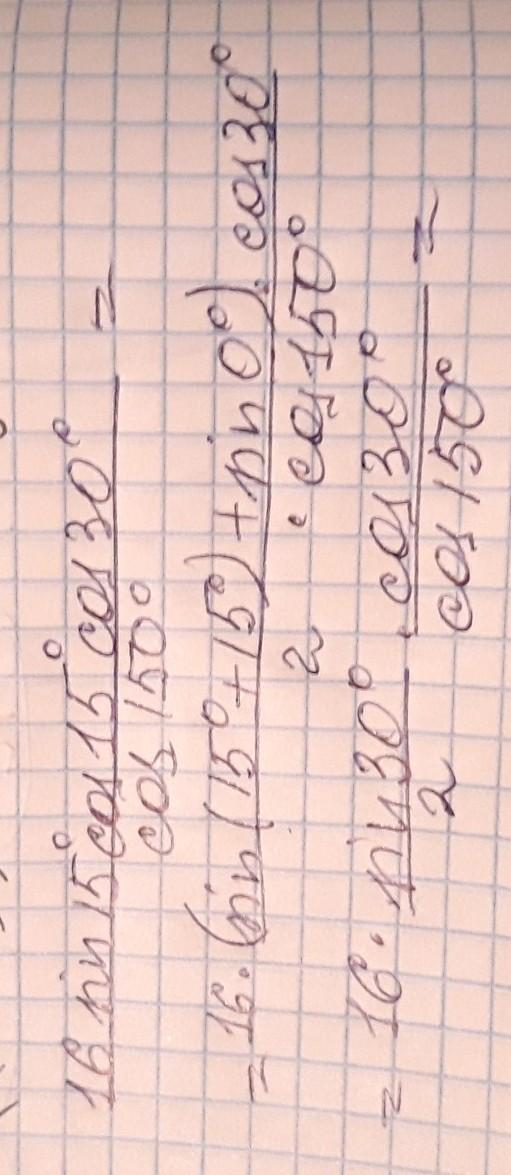 16 sin 15° cos 15° cos 30° =
cos 150°
= 16 · (sin (15° + 15°) + sin 0°) · cos 30°
2 · cos 150°
= 16 · sin 30° · cos 30° =
2 cos 150°